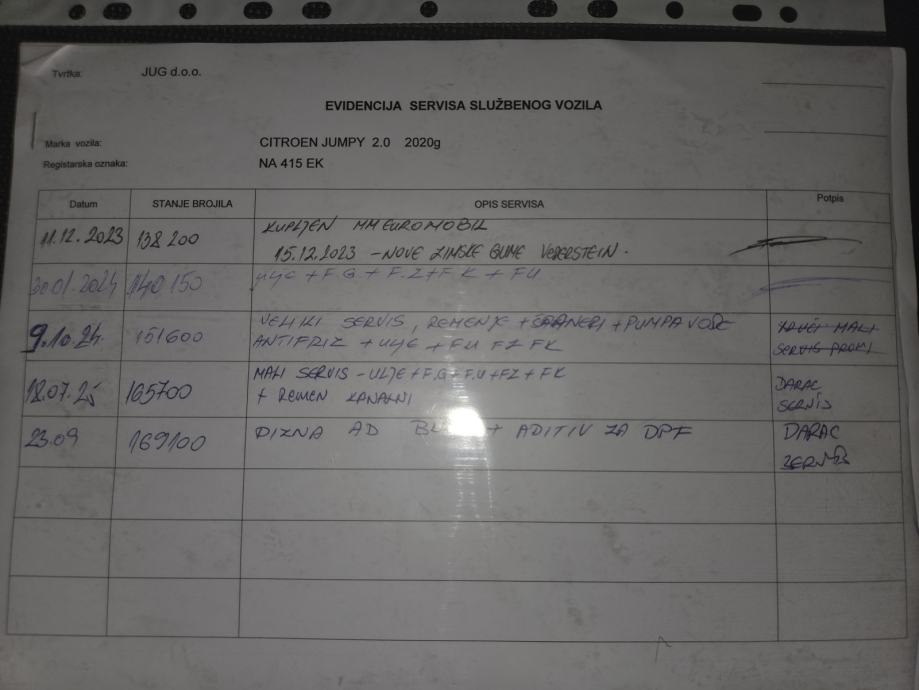 Tvrtka: JUG d.o.o.
EVIDENCIJA SERVISA SLUŽBENOG VOZILA
Marka vozila: CITROEN JUMPY 2.0 2020g
Registarska oznaka: NA 415 EK
Datum STANJE BROJILA OPIS SERVISA Potpis
11.12.2023 138 200 KUPLJEN MM EUROMOBIL
15.12.2023 - NOVE ZIMSKE GUME VREDERSTEIN.
30.01.2024 140 150 ULJE + F.G. + F.Z + F.K + F.U
9.10.24. 151600 VELIKI SERVIS, REMENJE + ŠPANERI + PUMPA VODE
ANTIFRIZ + ULJE + F.U FZ FK
MALI
SERVIS
18.07.25 165700 MALI SERVIS - ULJE + F.G + F.U + FZ + FK DARAC
+ REMEN KANALNI SERVIS
23.09 169100 DIZNA AD + ADITIV ZA DPF DARAC
SERVIS